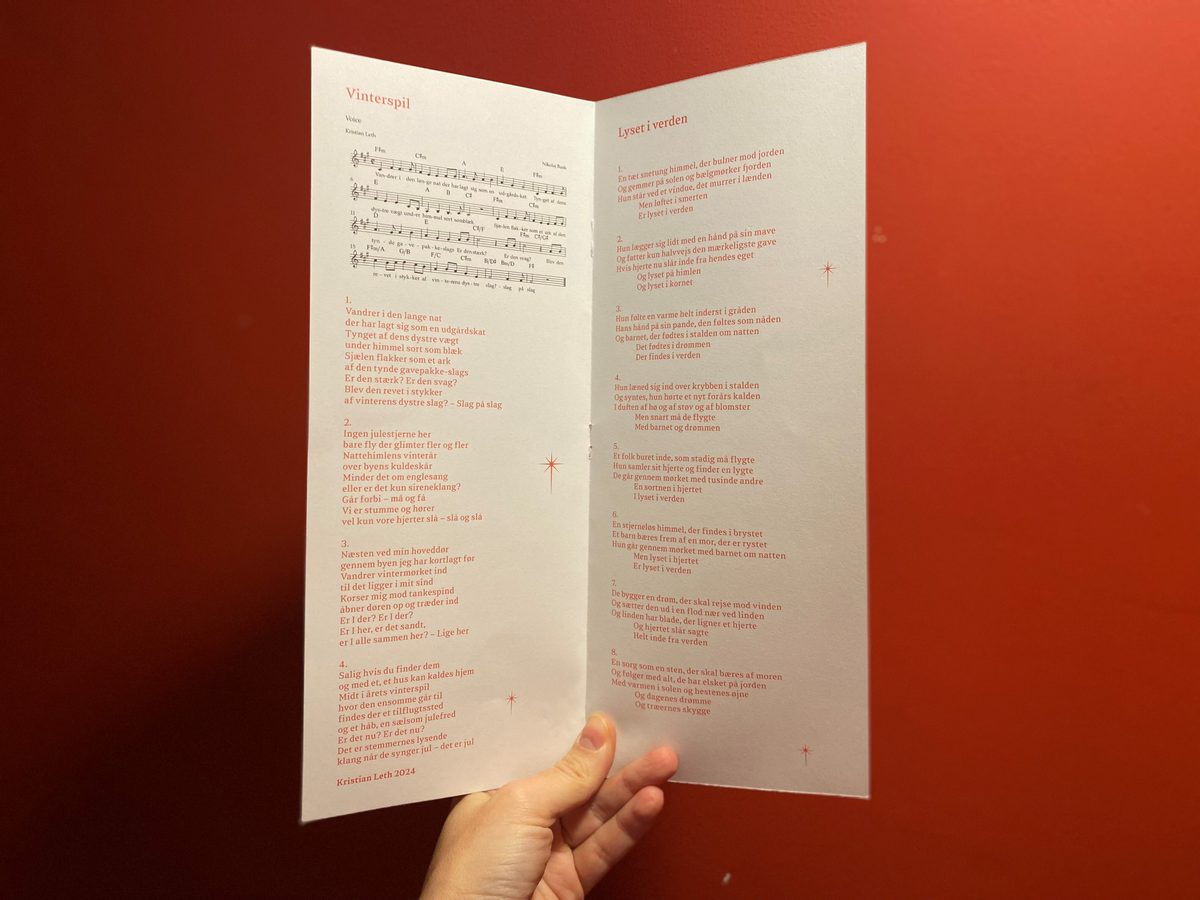 Vinterspil
Voice
Kristian Leth
Nikolai Busk
F#m C#m A E F#m
Van-drer i - den lan-ge nat der har lagt sig som en ud-gårds-kat Tyn-get af dens
6
E A B C# F#m C#m
dys-tre vægt und-er him-mel sort somblæk Sjæ-len flak-ker som et ark af den
11
D E C#/F F#m C#/G#
tyn - de ga - ve - pak - ke-slags Er den stærk? Er den svag? Blev den
15
F#m/A G/B F/C C#m B/D# Bm/D F#
re - vet i styk-ket af vin - te-rens dys-tre slag? - slag på slag
1.
Vandrer i den lange nat
der har lagt sig som en udgårdskat
Tynget af dens dystre vægt
under himmel sort som blæk
Sjælen flakker som et ark
af den tynde gavepakke-slags
Er den stærk? Er den svag?
Blev den revet i stykker
af vinterens dystre slag? – Slag på slag
2.
Ingen julestjerne her
bare fly der glimter fler og fler
Nattehimlens vinterår
over byens kuldeskår
Minder det om englesang
eller er det kun sireneklang?
Går forbi – må og få
Vi er stumme og hører
vel kun vore hjerter slå – slå og slå
3.
Næsten ved min hoveddør
gennem byen jeg har kortlagt før
Vandrer vintermørket ind
til det ligger i mit sind
Korser mig mod tankespind
åbner døren op og træder ind
Er I der? Er I der?
Er I her, er det sandt,
er I alle sammen her? – Lige her
4.
Salig hvis du finder dem
og med et, et hus kan kaldes hjem
Midt i årets vinterspil
hvor den ensomme går til
findes der et tilflugtssted
og et håb, en sælsom julefred
Er det nu? Er det nu?
Det er stemmernes lysende
klang når de synger jul – det er jul
Kristian Leth 2024
Lyset i verden
1.
En tæt snetung himmel, der bulner mod jorden
Og gemmer på solen og bælgmørker fjorden
Hun står ved et vindue, det murrer i lænden
Men løftet i smerten
Er lyset i verden
2.
Hun lægger sig lidt med en hånd på sin mave
Og fatter kun halvvejs den mærkeligste gave
Hvis hjerte nu slår inde fra hendes eget
Og lyset på himlen
Og lyset i kornet
3.
Hun følte en varme helt inderst i gråden
Hans hånd på sin pande, den føltes som nåden
Og barnet, der fødtes i stalden om natten
Det fødtes i drømmen
Der findes i verden
4.
Hun læned sig ind over krybben i stalden
Og syntes, hun hørte et nyt forårs kalden
I duften af hø og af støv og af blomster
Men snart må de flygte
Med barnet og drømmen
5.
Et folk buret inde, som stadig må flygte
Hun samler sit hjerte og finder en lygte
De går gennem mørket med tusinde andre
En sortnen i hjertet
I lyset i verden
6.
En stjerneløs himmel, der findes i brystet
Et barn bæres frem af en mor, der er rystet
Hun går gennem mørket med barnet om natten
Men lyset i hjertet
Er lyset i verden
7.
De bygger en drøm, der skal rejse mod vinden
Og sætter den ud i en flod nær ved linden
Og linden har blade, der ligner et hjerte
Og hjertet slår sagte
Helt inde fra verden
8.
En sorg som en sten, der skal bæres af moren
Og følger med alt, de har elsket på jorden
Med varmen i solen og hestenes øjne
Og dagenes drømme
Og træernes skygge